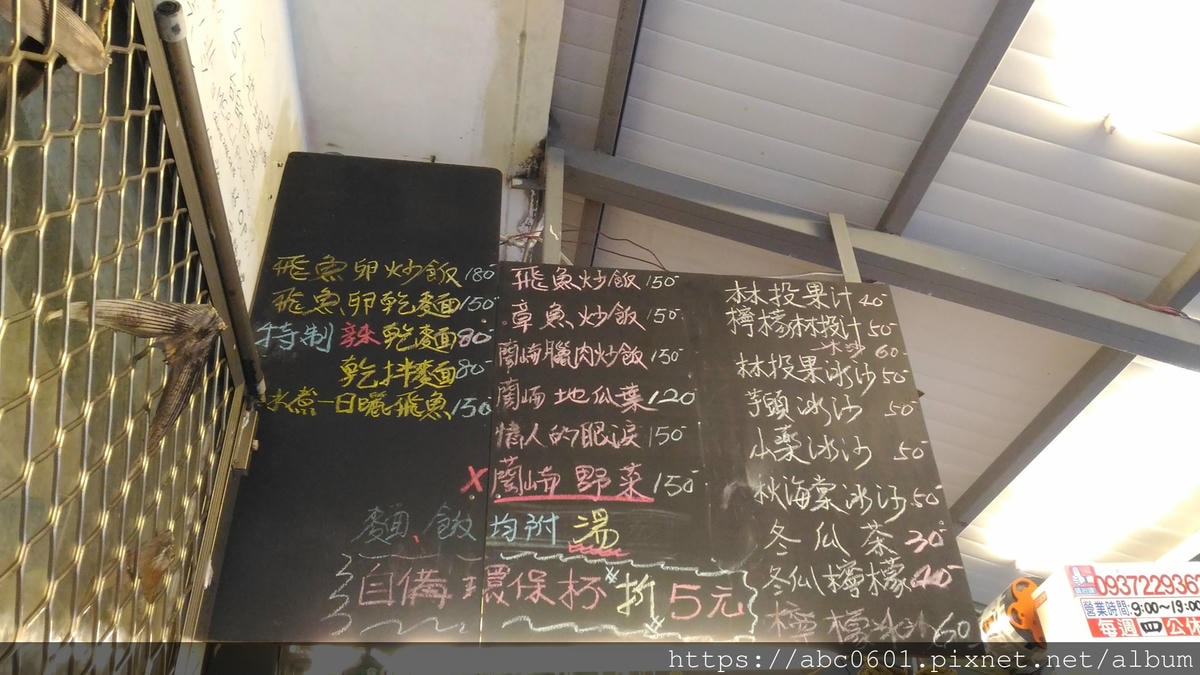 飛魚卵炒飯180
飛魚卵乾麵150
特制辣乾麵80
乾拌麵80
水煮一日曬飛魚150
飛魚炒飯150
章魚炒飯150
蘭嶼臘肉炒飯150
蘭嶼地瓜葉120
情人的眼淚150
X蘭嶼野菜150
麵、飯均附湯
自備環保杯折5元
林投果汁40
檸檬林投汁50
冰沙60
林投果冰沙50
芋頭冰沙50
山藥冰沙50
秋海棠冰沙50
冬瓜茶30
冬瓜檸檬40
檸檬冰沙60
0937229367
營業時間:9:00~19:00
每週四公休
https://abc0601.pixnet.net/album